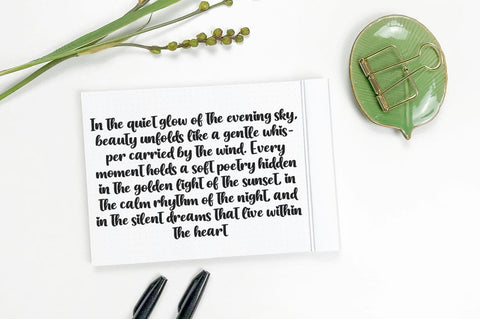 In the quiet glow of the evening sky,
beauty unfolds like a gentle whis-
per carried by the wind. Every
moment holds a soft poetry hidden
in the golden light of the sunset, in
the calm rhythm of the night, and
in the silent dreams that live within
the heart